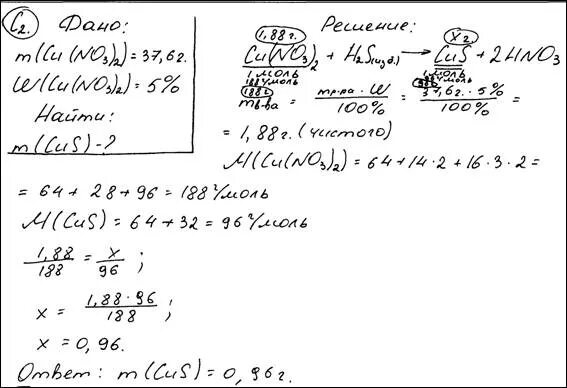 C2. Дано:
m(Cu(NO3)2) = 37,6г.
W(Cu(NO3)2) = 5%
Найти:
m(CuS) - ?
Решение:
1,88г. xг.
Cu(NO3)2 + H2S(изб.) → CuS + 2HNO3
1 моль 1 моль
188г/моль 96г/моль
188г 96г
mв-ва = mр-ра · W / 100% = 37,6г. · 5% / 100% =
= 1,88г. (чистого)
M(Cu(NO3)2) = 64 + 14 · 2 + 16 · 3 · 2 =
= 64 + 28 + 96 = 188 г/моль
M(CuS) = 64 + 32 = 96 г/моль
1,88 / 188 = x / 96 ;
x = 1,88 · 96 / 188 ;
x = 0,96.
Ответ: m(CuS) = 0,96г.